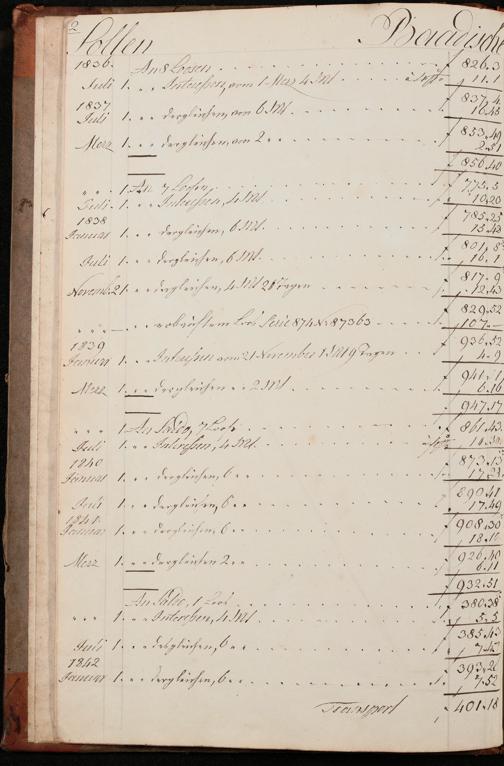 2
Sollen Badisch
1836. An 8 Loosen f 826.3
Juli 1. " " Interessen, vom 1 Merz 4 Mt 11.1
f 837.4
1837
Juli 1. " " dergleichen, von 6 Mt 16.45
f 853.49
Merz 1. " " dergleichen, von 2 " 2.51
f 856.40
" " 1. An 7 Loosen f 775.5
Juli. 1. " " Interessen, 4 Mt 10.20
f 785.25
1838
Januar 1. " " dergleichen, 6 Mt 15.43
f 801.8
Juli 1. " " dergleichen, 6 Mt. 16.1
f 817.9
Novemb. 21. " " dergleichen, 4 Mt 21 Tagen 12.43
f 829.52
" " " Loos Serie 874 N 87363 107.—
f 936.52
1839
Januar 1. " " Interessen vom 21 November 1 Mt 9 Tagen 4.9
f 941.1
Merz 1. " " dergleichen " " 2 Mt 6.16
f 947.17
" " " 1. An Saldo, 7 Loose f 861.43
Juli 1. " " Interessen, 4 Mt. 11.30
f 873.13
1840
Januar 1. " " dergleichen, 6 " " 17.28
f 890.41
Juli 1. " " dergleichen, 6 " " 17.49
f 908.30
1841
Januar 1. " " dergleichen, 6 " " 18.10
f 926.40
Merz 1. " " dergleichen 2 " " 6.11
f 932.51
An Saldo, 1 Loos f 380.38
" " " 1. " " Interessen, 4 Mt 5.5
f 385.43
Juli 1. " " dergleichen, 6 " " 7.43
f 393.26
1842
Januar 1. " " dergleichen, 6 " " 7.52
Transport f 401.18